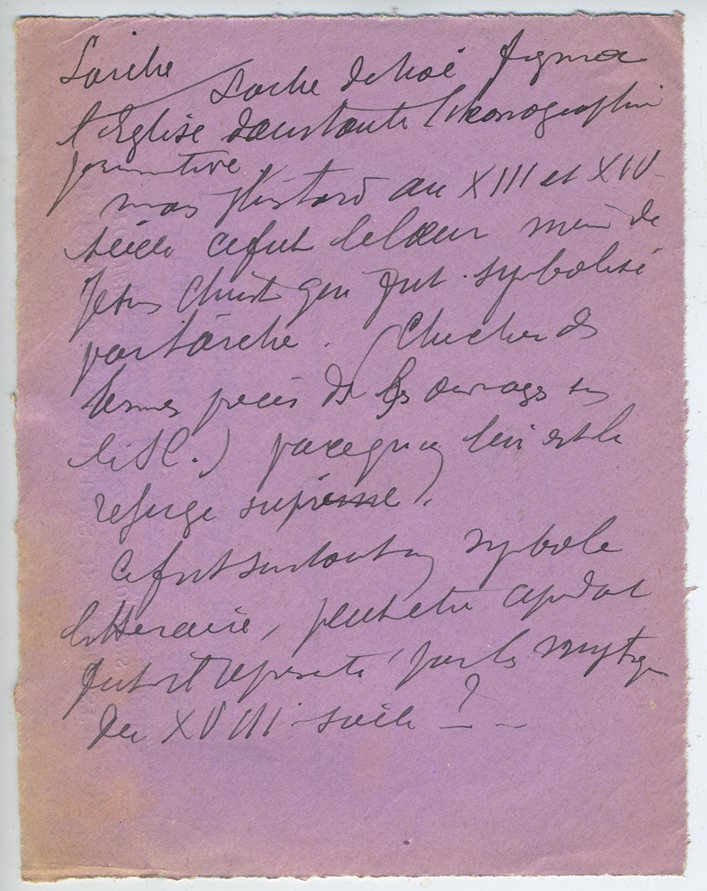 L'arche
L'arche de Noé figura
l'Eglise dans toute l'iconographie
primitive
mais plus tard au XIII et XIV
siècle ce fut le Cœur même de
Jesus Christ qui fut symbolisé
par l'arche. (Chercher des
termes précis de les ouvrages sur
le S.C.) parce que lui est le
refuge suprême.
Ce fut surtout un symbole
litteraire, peut etre cependant
fut il représenté par les mystiques
du XVIII siècle ?